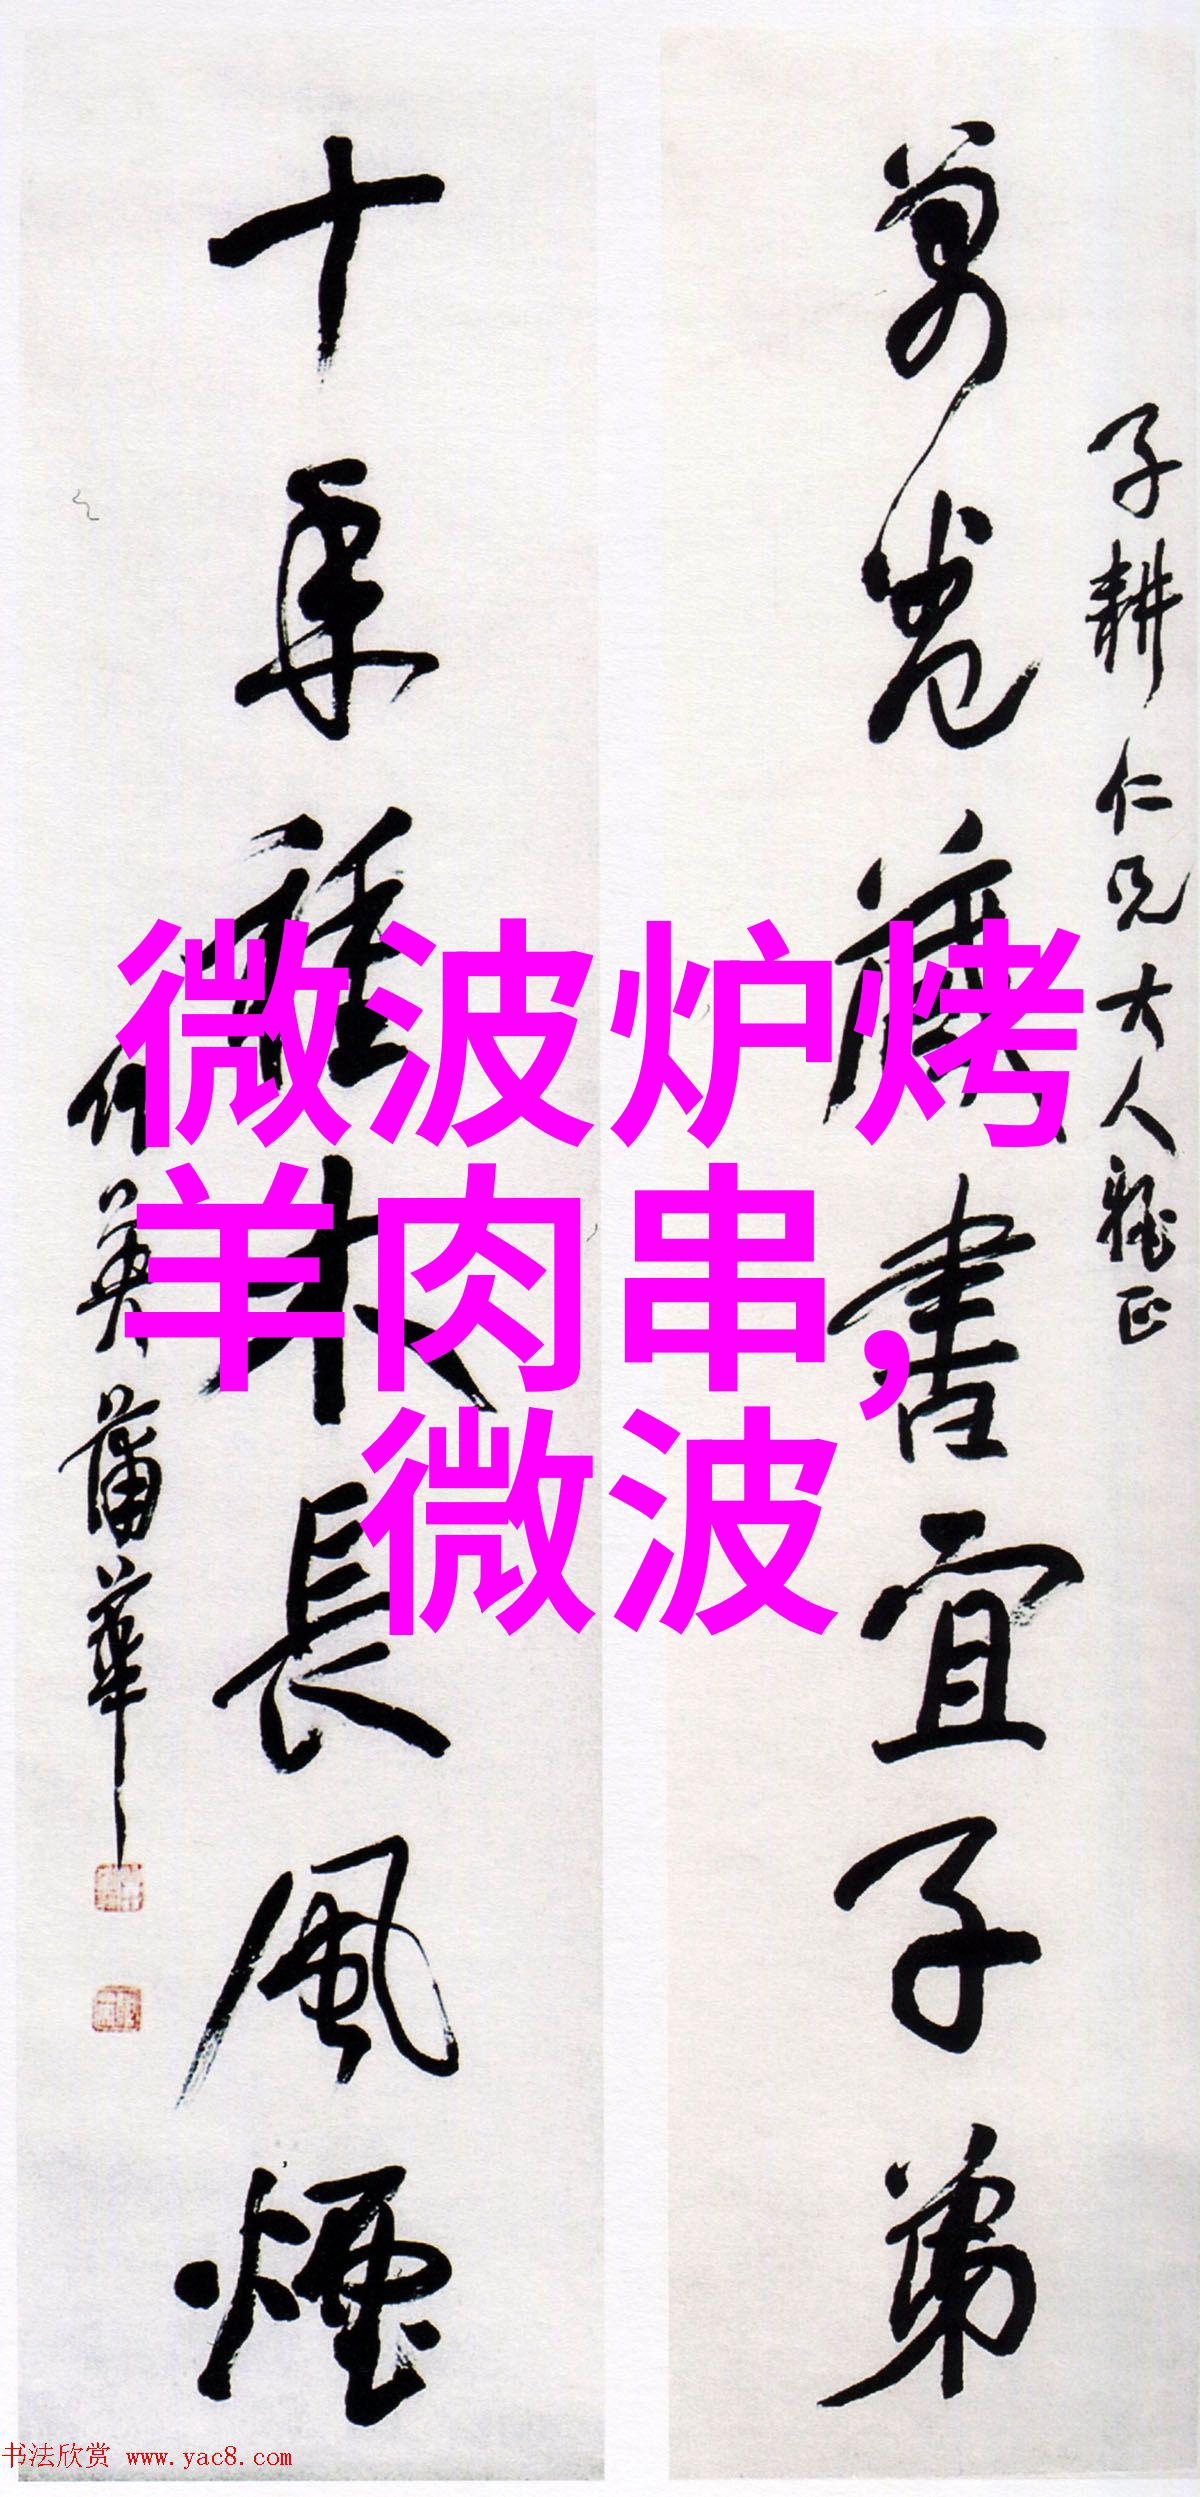 子耕仁兄大人雅正
萬卷藏書宜子弟
十年種木長風煙
作英蒲華
微波炉烤
羊肉串,
微波
书法欣赏 www.yac8.com